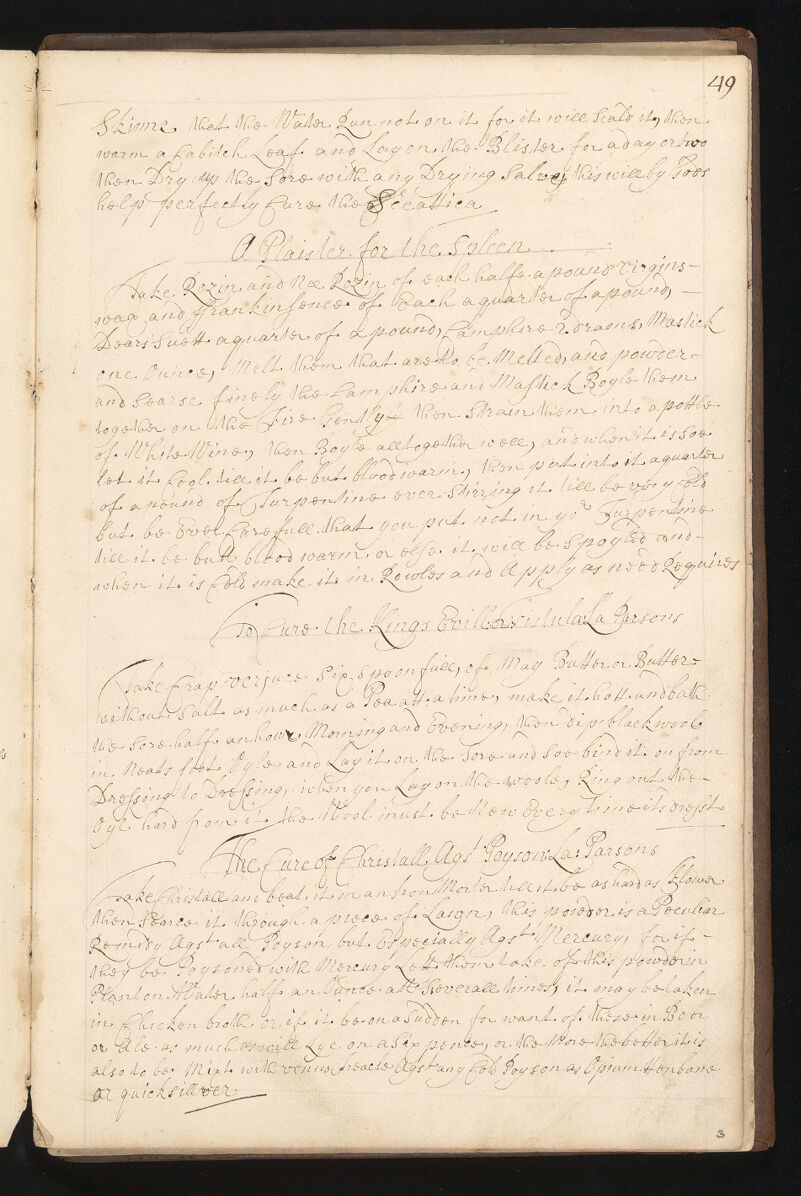 49
Skinne that the Water Run not on it for it will Scald it, then
warm a Cabitch Leaf and Lay on the Blister for a day or two
then Dry up the Sore with any Drying Salve, this will by Gods
help perfectly Cure the Sceattica
A Plaister for the Spleen
Take Rezin and Rozin of each halfe a pound Virgins-
wax and ffrankinsence of Each a quarter of a pound,
Dears Suett a quarter of a pound, Camphire 2 drams, Mastick
one Ounce, Melt them that are to be Melted, and powder-
and Searse finely the Camphire and Mastick Boyle them
together on the Fire Gently then Strain them into a pottle
of White Wine, then Boyle all together well, and when it is Soe
let it Cool till it be but blood warm, then put into it a quarter
of a pound of Turpentine ever Stirring it till be very Cold
but be Ever Carefull that you put not in yor Turpentine
till it be but blood warm or else it will be Spoyled and-
when it is Cold make it in Rowles and Apply as need Requires
To Cure the Kings Evill or Fistula: La Parsons
Take Crap verjuce Six Spoonfull, of May Butter or Butter-
without Salt as much as a Pea att a time, make it hott and bath
the Sore half an hour Morning and Evening, then dip black wool
in Neats foot Oyle and Lay it on the Sore and Soe bind it on from
Dressing to Dressing, when you Lay on the woole, Ring out the-
Oyl hard from it the Wool must be New Every Time its Dresst
The Cure of Christall Agst Poyson La: Parsons
Take Christall and beat it in an Iron Morter till it be as hard as Flower
then Searce it through a piece of Laign, this powder is a Peculiar
Remidy Agst all Poyson but Especially Agst Mercury, for if-
they be Poysoned with Mercury Lett them take of this powder in
Planton Water half an Ounce att Severall times, it may be taken
in Chicken broth or if it be on a Sudden for want of these in Beer
or Ale as much as will Lye on a Six pence, or the More the better it is
also to be Mixt with venus treacle Agst any Cold Poyson as Opium Henbane
or quicksillver
3